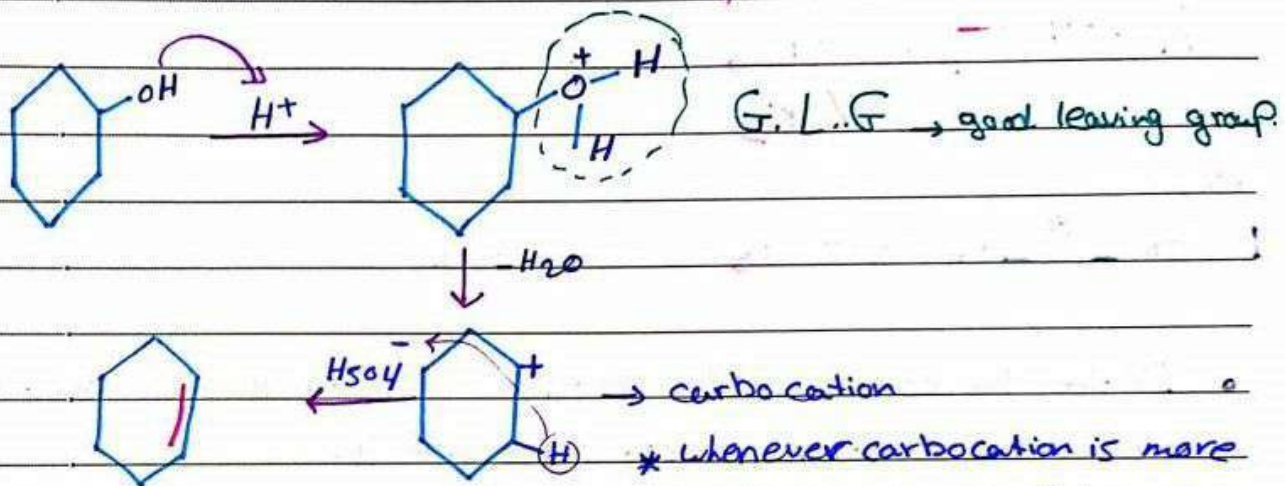 OH H+ + O H H G.L.G → good leaving group.
-H2O
HSO4- + H → carbocation
* whenever carbocation is more